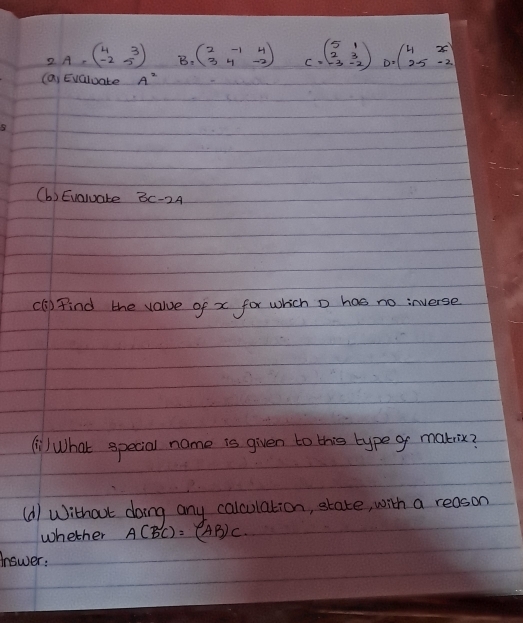 2 A = (4 3 -2 5) B = (2 -1 4 3 4 -2) C = (5 1 2 3 -3 -2) D = (4 x 2.5 -2)
(a) Evaluate A²
(b) Evaluate BC-2A
c(i) Find the value of x for which D has no inverse
(ii) What special name is given to this type of matrix?
(d) Without doing any calculation, state, with a reason
whether A(BC) = (AB)C.
Answer: